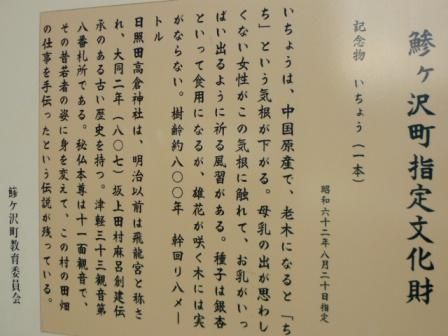 鯵ヶ沢町指定文化財
記念物　いちょう（一本）
昭和六十二年八月二十日指定
いちょうは、中国原産で、老木になると「ち
ち」という気根が下がる。母乳の出が思わし
くない女性がこの気根に触れて、お乳がいっ
ぱい出るように祈る風習がある。種子は銀杏
といって食用になるが、雄花が咲く木には実
がならない。樹齢約八〇〇年　幹回り八メー
トル
日照田高倉神社は、明治以前は飛龍宮と称さ
れ、大同二年（八〇七）坂上田村麻呂創建伝
承のある古い歴史を持つ。津軽三十三観音第
八番札所である。秘仏本尊は十一面観音で、
その昔若者の姿に身を変えて、この村の田畑
の仕事を手伝ったという伝説が残っている。
鯵ヶ沢町教育委員会